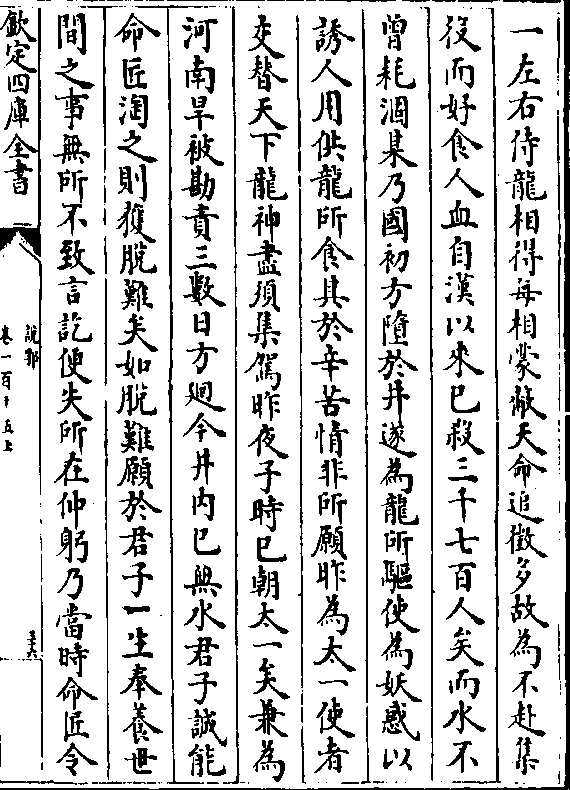 一左右侍龍相得每相蒙蔽天命追徵多故為不赴集
役而好食人血自漢以來已殺三千七百人矣而水不
曾耗涸某乃國初方墮於井遂為龍所驅使為妖惑以
誘人用供龍所食其於辛苦情非所願昨為太一使者
交替天下龍神盡須集駕昨夜子時已朝太一矣兼為
河南旱被勘責三數日方廻今井内已無水君子誠能
命匠淘之則獲脱難矣如脱難願於君子一生奉養世
間之事無所不致言訖便失所在仲躬乃當時命匠令
欽定四庫全書
說郛
卷一百十五上